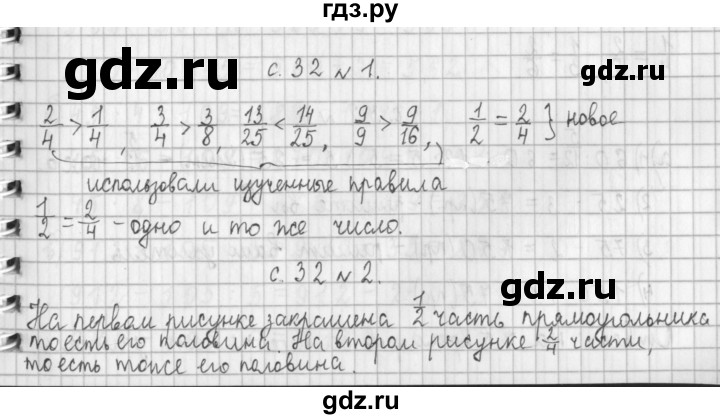 гдз.ру
gdz.ru
gdz.ru
с. 32 № 1.
2/4 > 1/4, 3/4 > 3/8, 13/25 < 14/25, 9/9 > 9/16, 1/2 = 2/4 } новое
использовали изученные правила
1/2 = 2/4 - одно и то же число.
gdz.ru
с. 32 № 2.
gdz.ru
На первом рисунке закрашена 1/2 часть прямоугольника
то есть его половина. На втором рисунке 2/4 части,
то есть тоже его половина.
gdz.ru
gdz.ru
gdz.ru